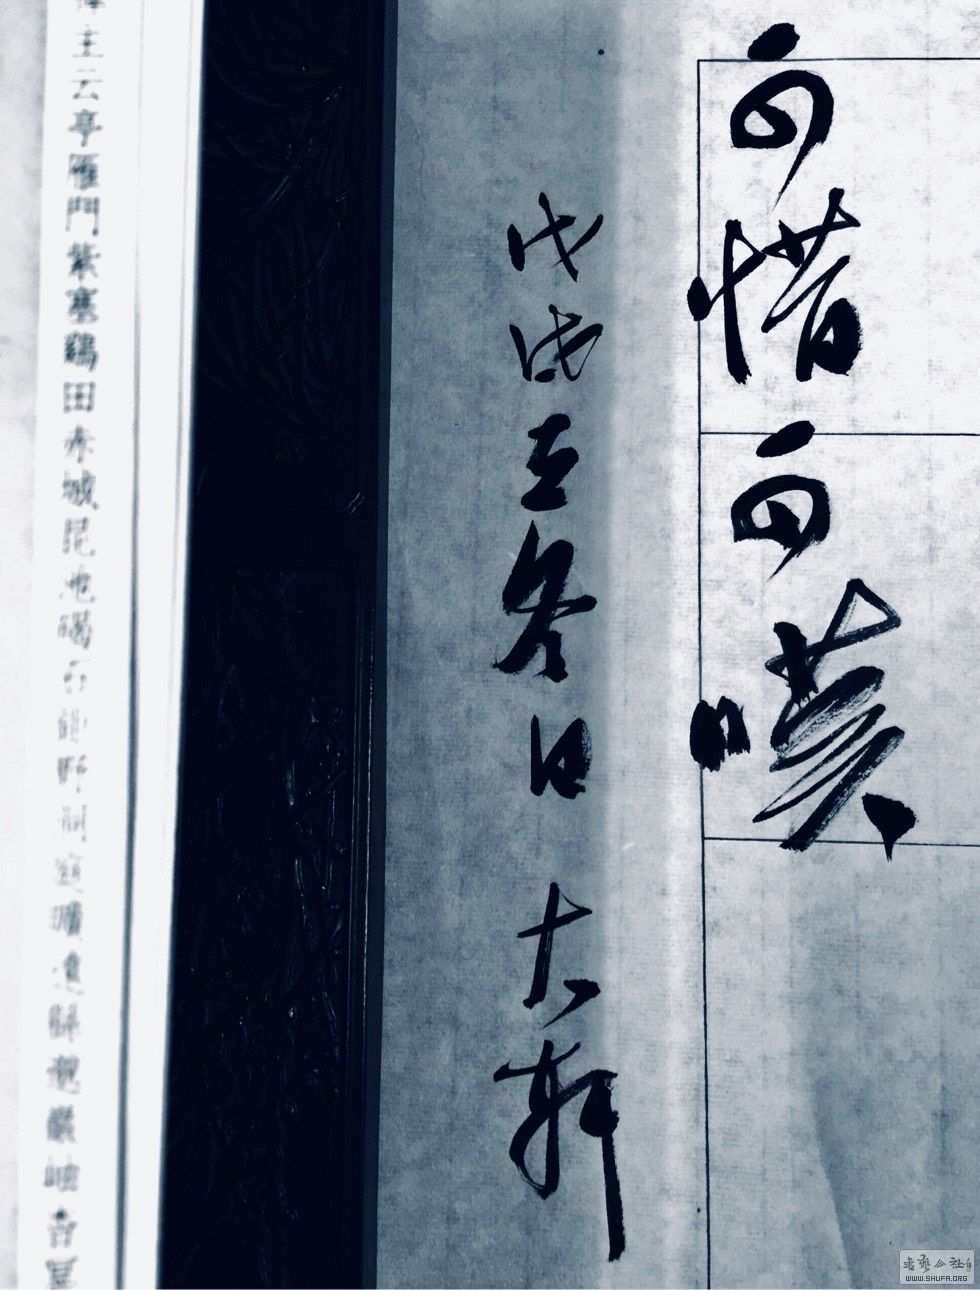 可惜可嘆
戊戌立冬日 大軒
主云亭雁門紫塞鷄田赤城昆池碣石鉅野洞庭曠遠緜邈巖岫杳冥
書藝公社
WWW.SHUFA.ORG